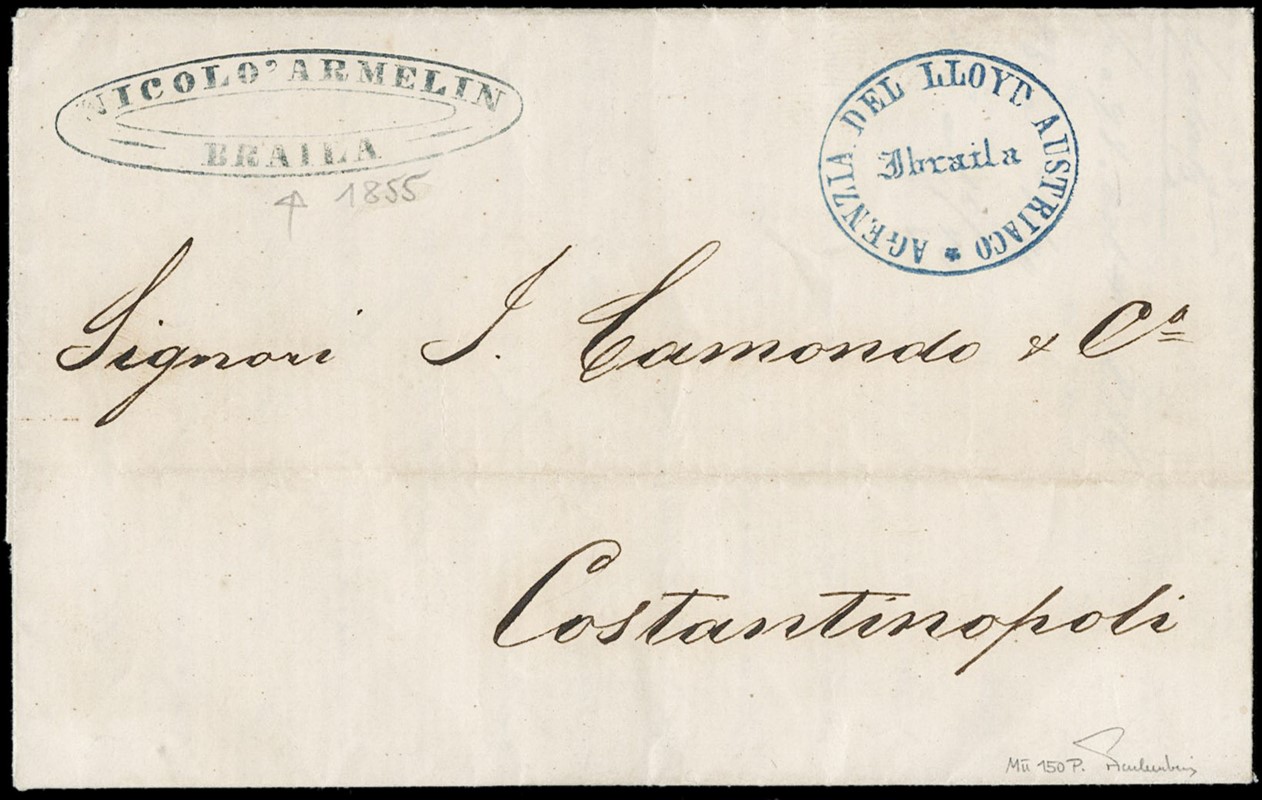 NICOLO' ARMELIN
BRAILA
1855
AGENZIA DEL LLOYD AUSTRIACO
Ibraila
Signori J. Camondo & Cª
Costantinopoli
MII 150 P.